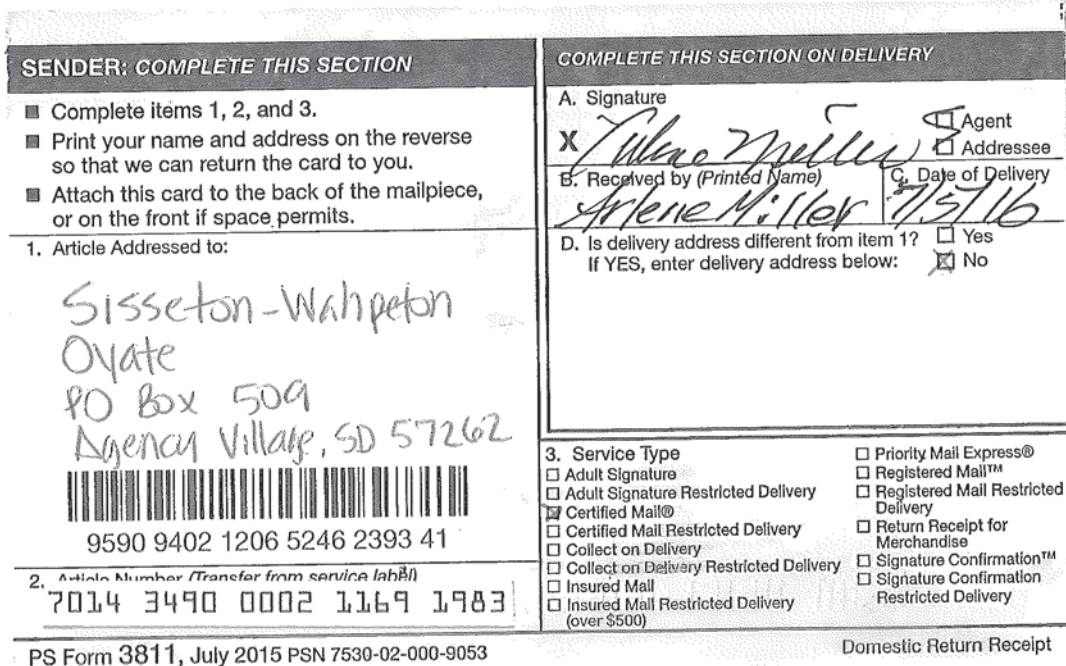 SENDER: COMPLETE THIS SECTION
■ Complete items 1, 2, and 3.
■ Print your name and address on the reverse
so that we can return the card to you.
■ Attach this card to the back of the mailpiece,
or on the front if space permits.
1. Article Addressed to:
Sisseton-Wahpeton
Oyate
PO Box 509
Agency Village, SD 57262
9590 9402 1206 5246 2393 41
2. Article Number (Transfer from service label)
7014 3490 0002 1169 1983
COMPLETE THIS SECTION ON DELIVERY
A. Signature
X Arlene Miller
☐ Agent
☐ Addressee
B. Received by (Printed Name)
C. Date of Delivery
Arlene Miller 7/5/16
D. Is delivery address different from item 1? ☐ Yes
If YES, enter delivery address below: ☒ No
3. Service Type
☐ Adult Signature
☐ Adult Signature Restricted Delivery
☒ Certified Mail®
☐ Certified Mail Restricted Delivery
☐ Collect on Delivery
☐ Collect on Delivery Restricted Delivery
☐ Insured Mail
☐ Insured Mail Restricted Delivery
(over $500)
☐ Priority Mail Express®
☐ Registered Mail™
☐ Registered Mail Restricted
Delivery
☐ Return Receipt for
Merchandise
☐ Signature Confirmation™
☐ Signature Confirmation
Restricted Delivery
PS Form 3811, July 2015 PSN 7530-02-000-9053
Domestic Return Receipt